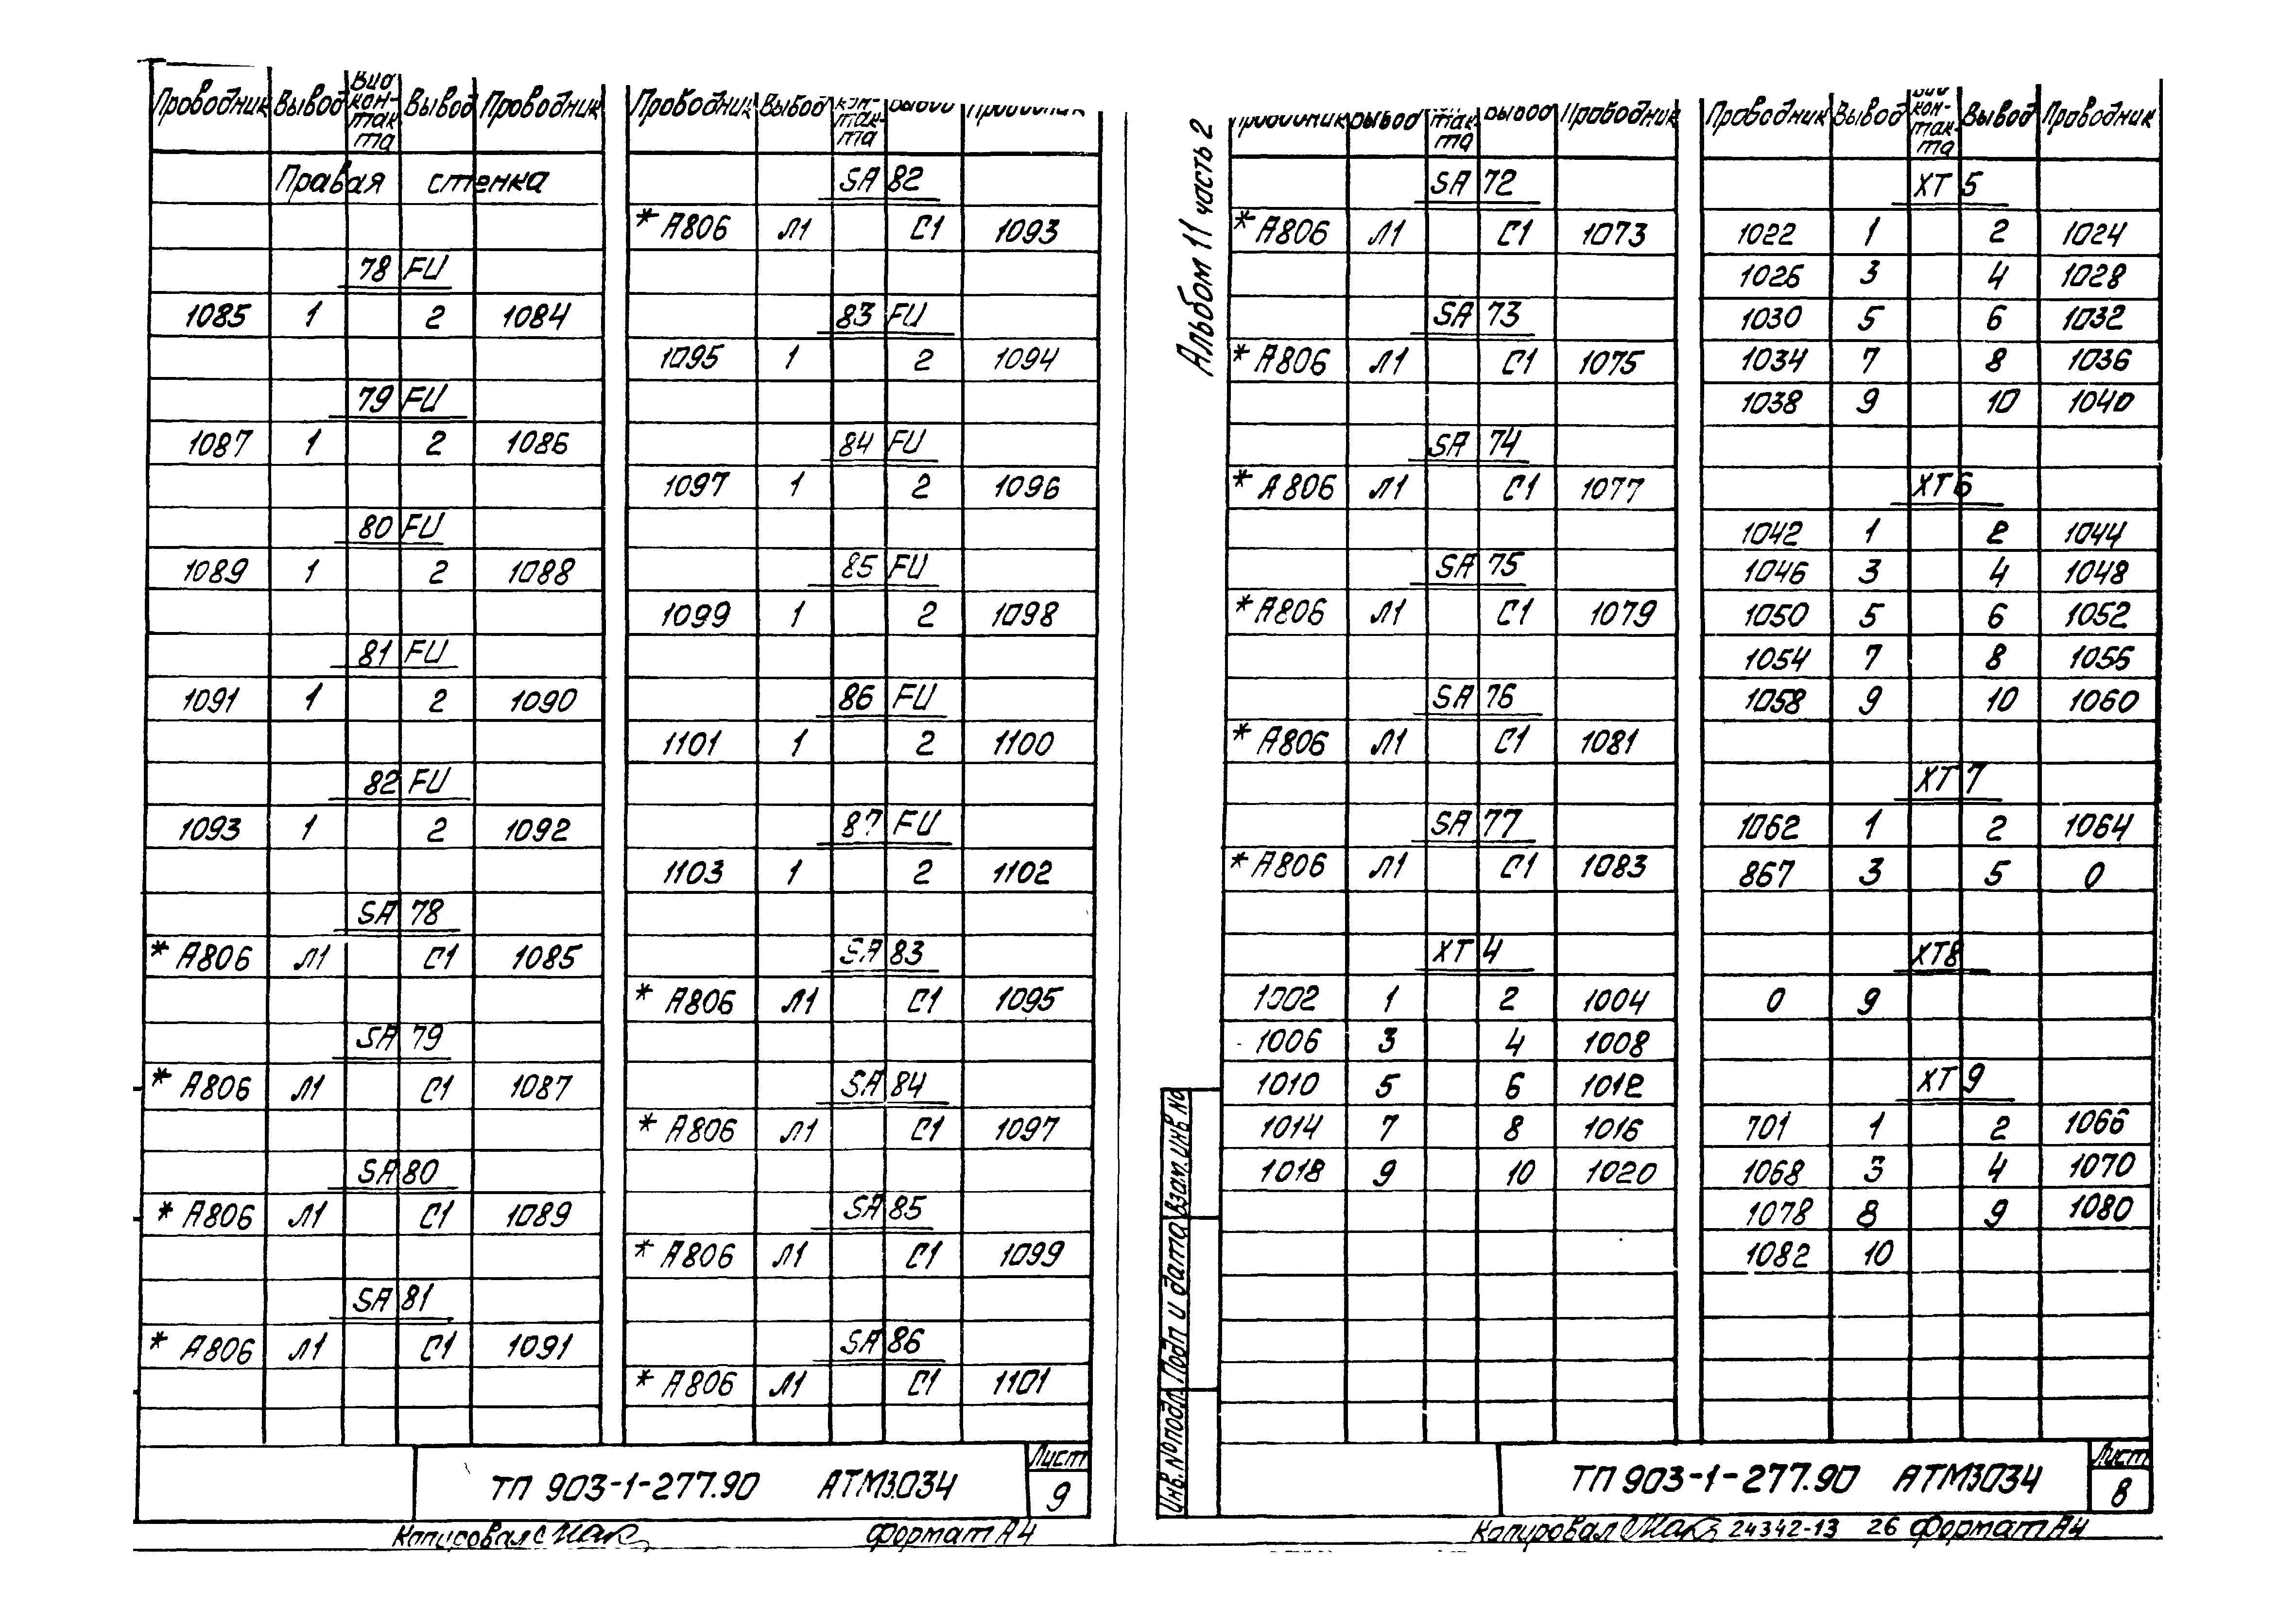 Проводник Вывод Вид кон-такта Вывод Проводник
Правая стенка
78 FU
1085 1 2 1084
79 FU
1087 1 2 1086
80 FU
1089 1 2 1088
81 FU
1091 1 2 1090
82 FU
1093 1 2 1092
SA 78
* A806 Л1 C1 1085
SA 79
* A806 Л1 C1 1087
SA 80
* A806 Л1 C1 1089
SA 81
* A806 Л1 C1 1091
Проводник Вывод кон-так-та Вывод Проводник
SA 82
* A806 Л1 C1 1093
83 FU
1095 1 2 1094
84 FU
1097 1 2 1096
85 FU
1099 1 2 1098
86 FU
1101 1 2 1100
87 FU
1103 1 2 1102
SA 83
* A806 Л1 C1 1095
SA 84
* A806 Л1 C1 1097
SA 85
* A806 Л1 C1 1099
SA 86
* A806 Л1 C1 1101
ТП 903-1-277.90 АТМ3.034
Лист
9
Копировал
Формат А4
Альбом 11 часть 2
Проводник Вывод так-та Вывод Проводник
SA 72
* A806 Л1 C1 1073
SA 73
* A806 Л1 C1 1075
SA 74
* A806 Л1 C1 1077
SA 75
* A806 Л1 C1 1079
SA 76
* A806 Л1 C1 1081
SA 77
* A806 Л1 C1 1083
XT 4
1002 1 2 1004
1006 3 4 1008
1010 5 6 1012
1014 7 8 1016
1018 9 10 1020
Проводник Вывод Вид кон-так-та Вывод Проводник
XT 5
1022 1 2 1024
1026 3 4 1028
1030 5 6 1032
1034 7 8 1036
1038 9 10 1040
XT 6
1042 1 2 1044
1046 3 4 1048
1050 5 6 1052
1054 7 8 1056
1058 9 10 1060
XT 7
1062 1 2 1064
867 3 5 0
XT8
0 9
XT 9
701 1 2 1066
1068 3 4 1070
1078 8 9 1080
1082 10
Взам. инв №
Подп и дата
Инв. № подл.
ТП 903-1-277.90 АТМ3.034
Лист
8
Копировал
24342-13 26 Формат А4